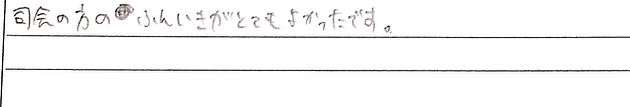 司会の方のふんいきがとてもよかったです。